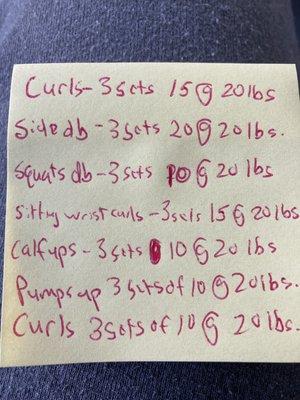 Curls - 3 sets 15 @ 20 lbs
Side db - 3 sets 20 @ 20 lbs.
Squats db - 3 sets 10 @ 20 lbs
Sitting wrist curls - 3 sets 15 @ 20 lbs
Calf ups - 3 sets 10 @ 20 lbs
Pumps up 3 sets of 10 @ 20 lbs.
Curls 3 sets of 10 @ 20 lbs.